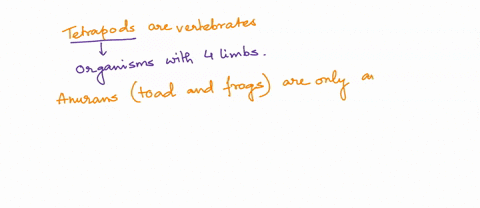 Tetrapods are vertebrates
Organisms with 4 limbs.
Anurans (toad and frogs) are only